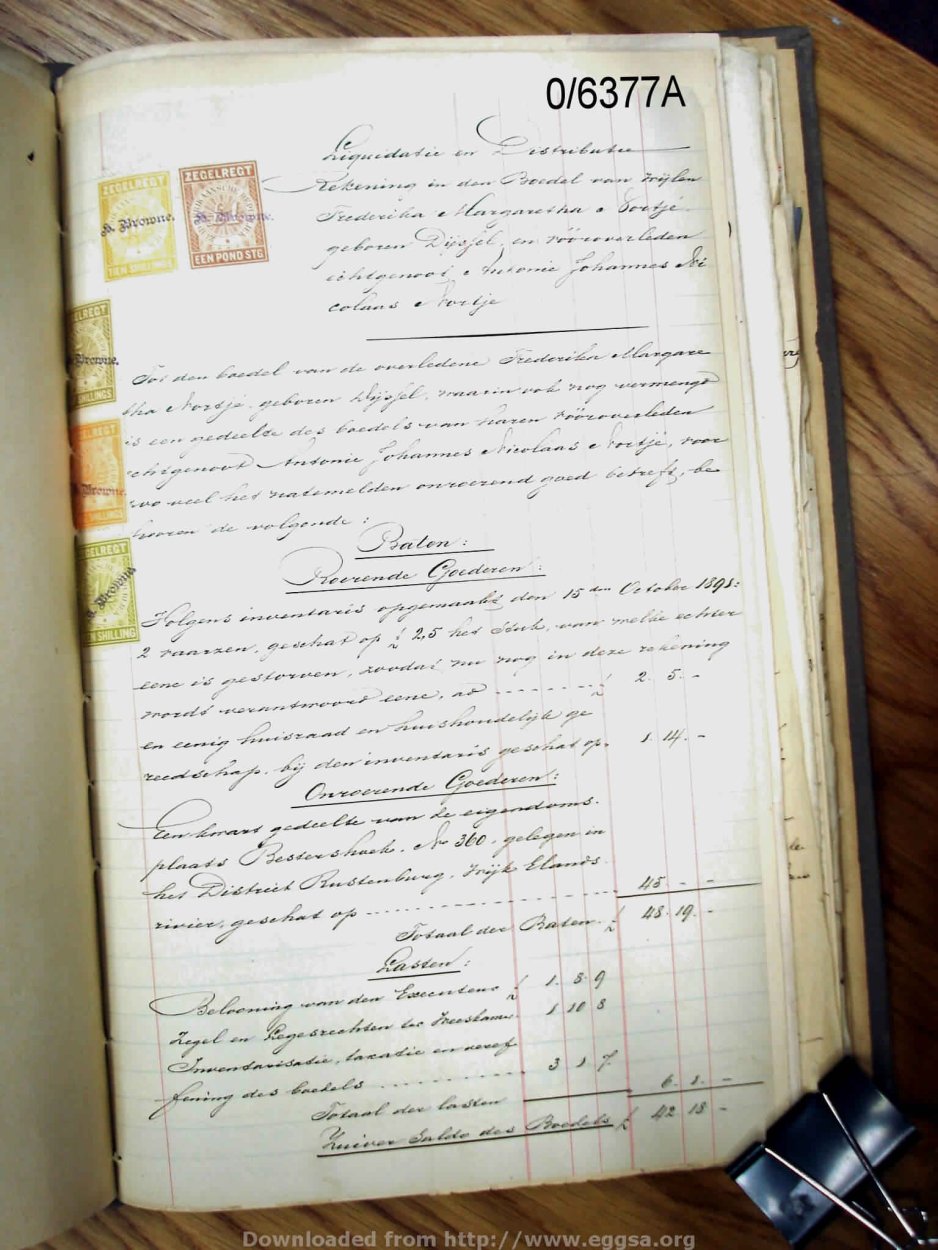 0/6377A
Liquidatie en Distributie
Rekening in den Boedel van wijlen
Frederika Margaretha Nortjé
geboren Dijssel, en vooroverleden
echtgenoot Antonie Johannes Ni
colaas Nortje
ZEGELREGT
TIEN SHILLINGS
B. Browne.
ZEGELREGT
EEN POND STG
B. Browne.
Browne.
SHILLINGS
Browne
SHILLINGS
ZEGELREGT
B. Browne
EN SHILLING
Tot den boedel van de overledene Frederika Margare
tha Nortjé, geboren Dijssel, waarin ook nog vermengd
is een gedeelte des boedels van haren vooroverleden
echtgenoot Antonie Johannes Nicolaas Nortjé, voor
zoo veel het natemelden onroerend goed betreft, be
hooren de volgende :
Baten :
Roerende Goederen :
Volgens inventaris opgemaakt den 15den October 1898:
2 vaarzen, geschat op £ 2,5 het stuk, van welke echter
eene is gestorven, zoodat nu nog in deze rekening
wordt verantwoord eene, ad - - - - - - - £ 2. 5. -
en eenig huisraad en huishoudelijk ge
reedschap, bij den inventaris geschat op. 1 14. -
Onroerende Goederen :
Een kwart gedeelte van de eigendoms.
plaats Bestershoek, No 360, gelegen in
het District Rustenburg, Wijk Elands
rivier, geschat op - - - - - - - - - - 45 - -
Totaal der Baten. £ 48. 19. -
Lasten :
Belooning van den Executeur £ 1. 8 9
Zegel en Legesrechten ter Weeskamer 1 10 8
Inventarisatie, taxatie en veref
fening des boedels - - - - - - - 3 1 7
Totaal der lasten 6. 1. -
Zuiver Saldo des Boedels £ 42 18 -
Downloaded from http://www.eggsa.org